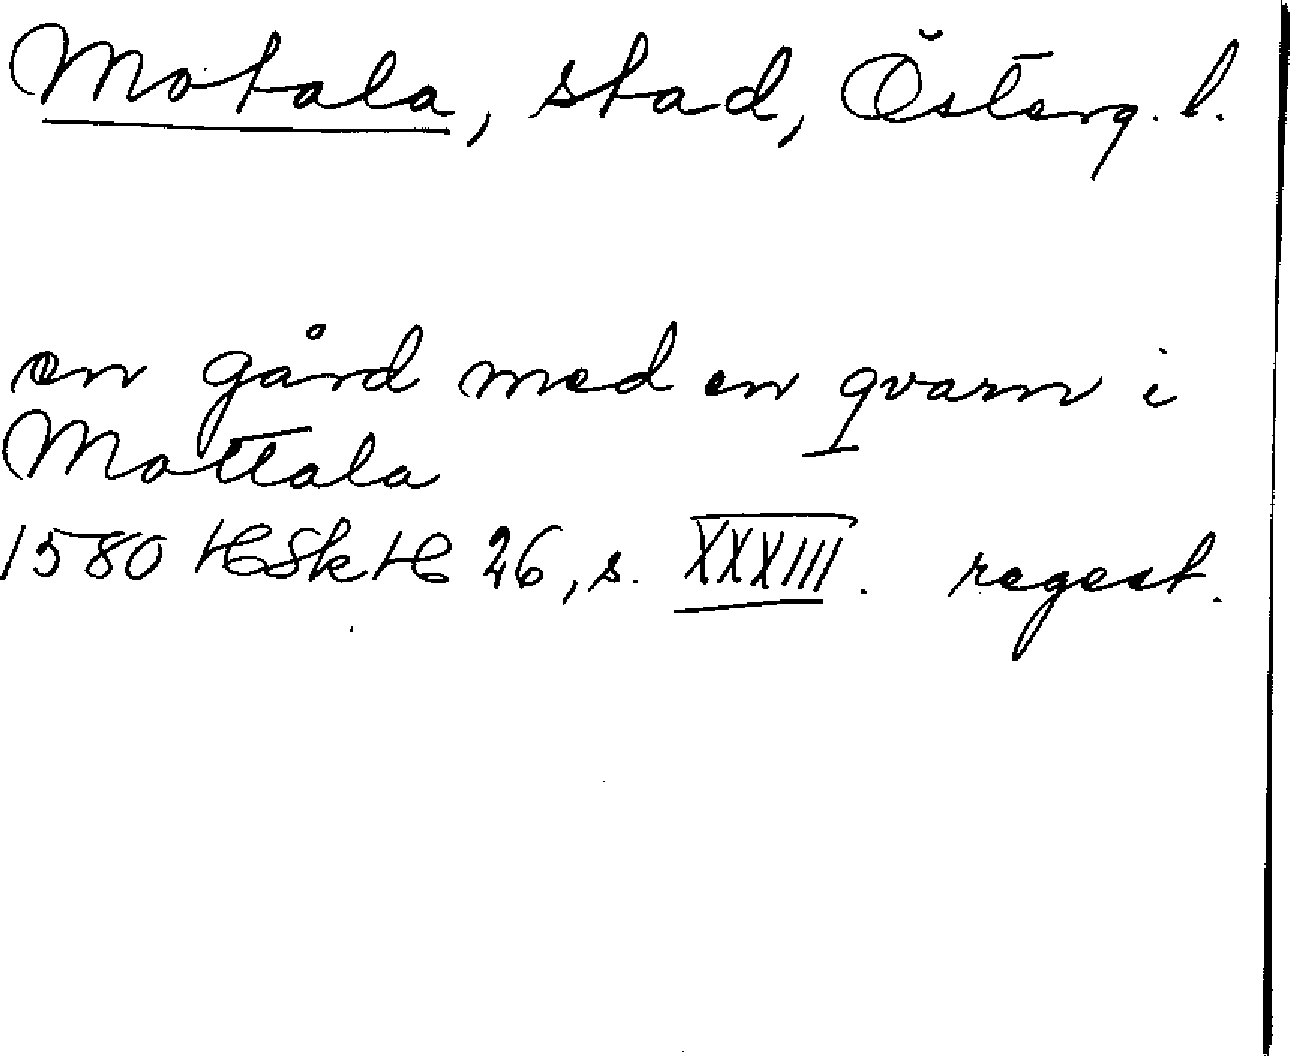 Motala, stad, Österg. l.
en gård med en qvarn i
Mottala
1580 HSkH 26, s. XXXIII. regest.